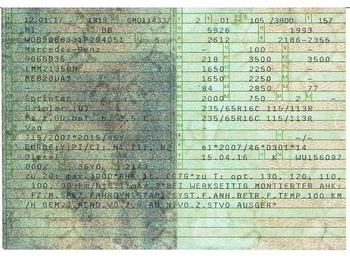 12.01.17 1313 GMO114337 2 01 105 /3800 157
M1 BB 5926 1993
6 2612 2186-2356
Mercedes-Benz - 100 -
906BB35 218 3500 3500
1650 2250 -
1650 2250 -
- 84 2850 77
Sprinter 2000 750 2 -
Daimler (D) 235/65R16C 115/113R
Fz.z.Gü.bef. b. 3,5 t 235/65R16C 115/113R
Van
715/2007*2015/45Y -/-
e1*2007/46*0301*14
Diesel 15.04.16 K WU156097
0002 2143
zu 20: max.3000*AHK lt. EGTG*zu T: opt. 130, 120, 110,
100, 90 km/h BEI WERKSEITIG MONTIERTER AHK:
FZ.M.SPZ.FAHRDYN.STABI.SYST.F.ANH.BETR.F.TEMP.100 KM
/H GEM.3.AEND.VO.Z.9.AUSN.VO.Z.STVO AUSGER*